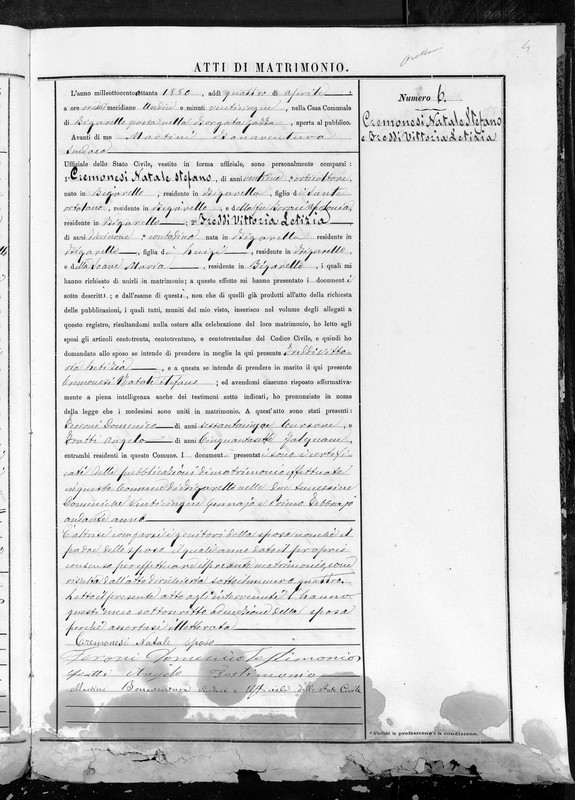 4
ATTI DI MATRIMONIO.
L'anno milleottocentottanta 1880, addì quattro di aprile
a ore meridiane undici e minuti, nella Casa Comunale
di Bigarello posta nella Borgata, aperta al pubblico.
Avanti di me Martini Bonaventura
Sindaco
Uffiziale dello Stato Civile, vestito in forma uffiziale, sono personalmente comparsi:
1° Cremonesi Natale Stefano, di anni,
nato in Bigarello, residente in Bigarello, figlio di
ortolano, residente in Bigarello, e della fu
residente in Bigarello; 2° Tressi Vittoria Letizia
di anni contadina nata in Bigarello residente in
Bigarello, figlia di Luigi, residente in Bigarello,
e di Soave Maria, residente in Bigarello, i quali mi
hanno richiesto di unirli in matrimonio; a questo effetto mi hanno presentato i documenti
sotto descritti; e dall'esame di questi, non che di quelli già prodotti all'atto della richiesta
delle pubblicazioni, i quali tutti, muniti del mio visto, inserisco nel volume degli allegati a
questo registro, risultandomi nulla ostare alla celebrazione del loro matrimonio, ho letto agli
sposi gli articoli centotrenta, centotrentuno, e centotrentadue del Codice Civile, e quindi ho
domandato allo sposo se intende di prendere in moglie la qui presente Tressi Vitto-
ria Letizia, e a questa se intende di prendere in marito il qui presente
Cremonesi Natale Stefano; ed avendomi ciascuno risposto affermativa-
mente a piena intelligenza anche dei testimoni sotto indicati, ho pronunziato in nome
della legge che i medesimi sono uniti in matrimonio. A quest'atto sono stati presenti:
Feroni Domenico di anni sessantacinque, e
Fratti Angelo di anni cinquantasette,
entrambi residenti in questo Comune. I documenti presentati sono i certifi-
cati delle pubblicazioni di matrimonio effettuate
in questo Comune di Bigarello nelle due successive
Domeniche venticinque Gennajo e primo Febbrajo
andante anno
comparsi i genitori della sposa nonchè il
padre dello sposo i quali anno dato il proprio
consenso per effettuare il presente matrimonio come
risulta dall'atto di richiesta sotto il numero quattro.
Letto il presente atto agli intervenuti l'hanno
questi meco sottoscritto ad eccezione della sposa
perchè illetterata
Cremonesi Natale sposo
Feroni Domenico Testimonio
Fratti Angelo Testimonio
Martini Bonaventura Sindaco e Uffiziale dello Stato Civile
Numero 6.
Cremonesi Natale Stefano
e Tressi Vittoria Letizia
* S'indichi la professione o la condizione.